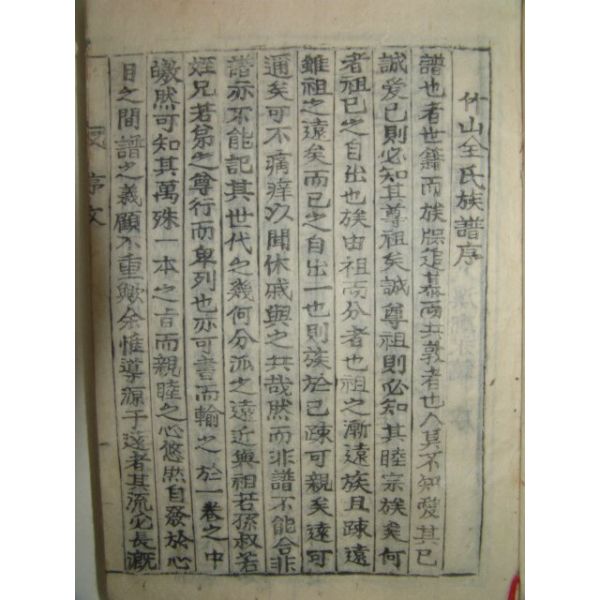 竹山全氏族譜序
譜也者世籍而族牒追其本而共敦者也人莫不知愛其己
誠愛己則必知其尊祖矣誠尊祖則必知其睦宗族矣何
者祖己之自出也族由祖而分者也祖之漸遠族且疎遠
雖祖之遠矣而己之自出一也則族於己疎可親矣遠可
邇矣可不痛痒以聞休戚與之共哉然而非譜不能合非
譜亦不能記其世代之幾何分派之遠近與祖若孫叔若
姪兄若弟之尊行而卑列也亦可書而輸之於一卷之中
皦然可知其萬殊一本之旨而親睦之心悠然自發於心
目之間譜之義顧不重歟余惟導源于遠者其流必長溉
序文